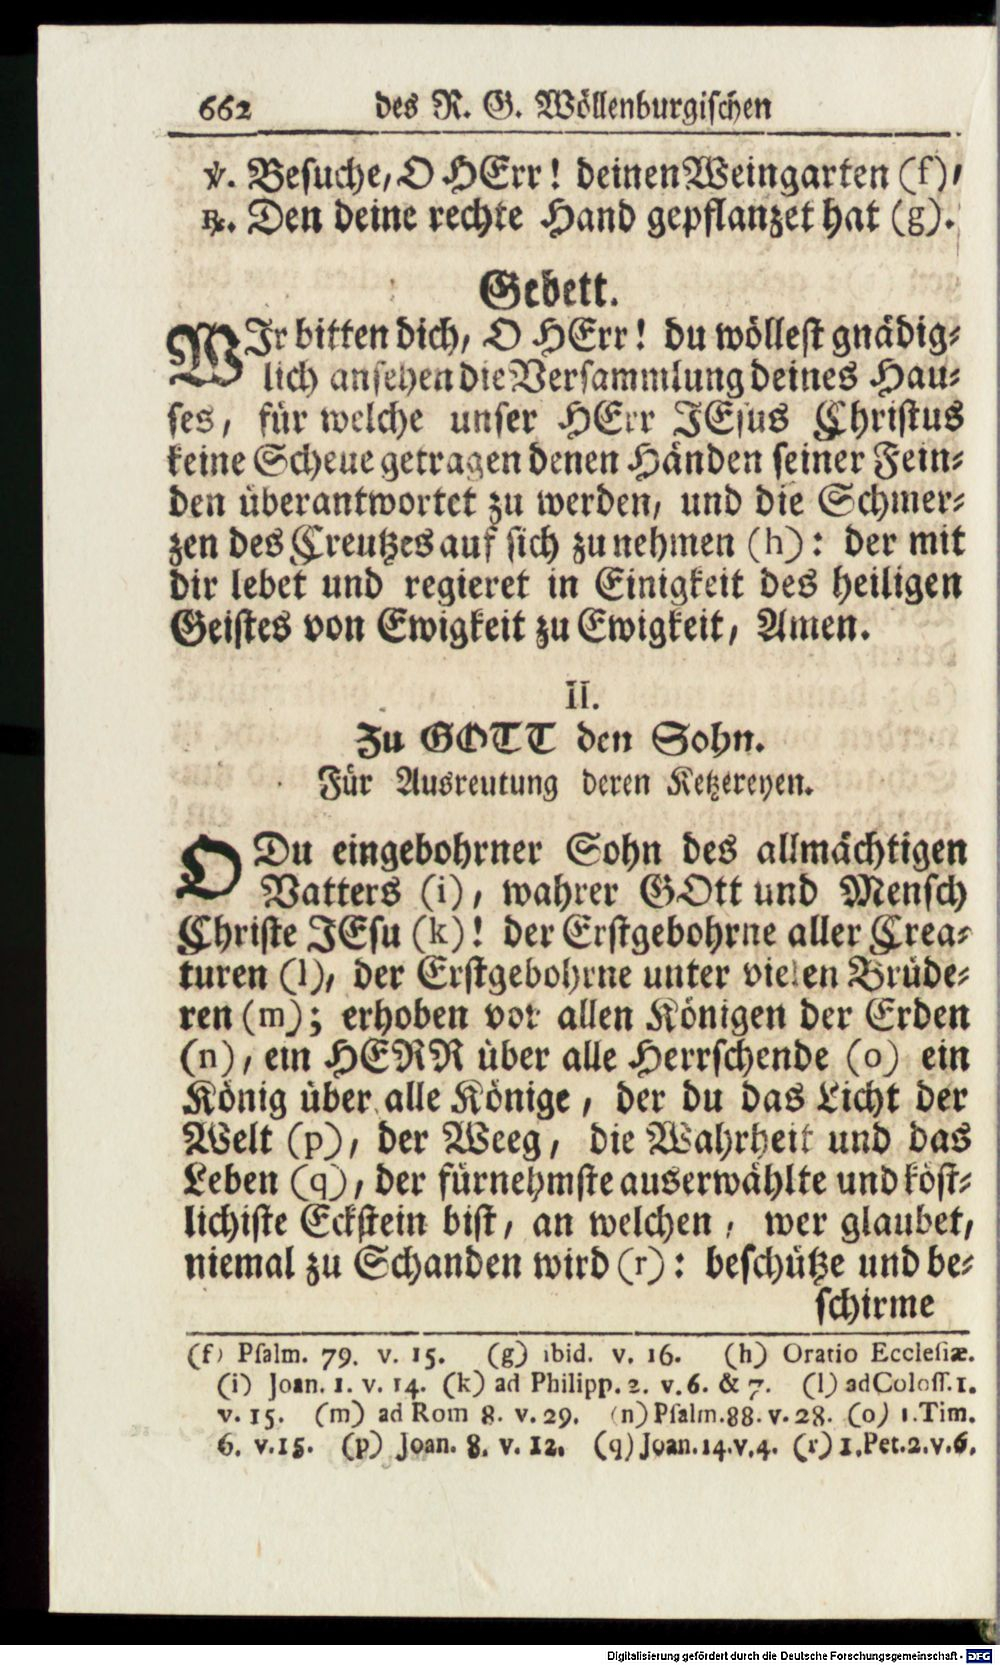 662 des R. G. Wöllenburgischen
℣. Besuche, O HErr! deinen Weingarten (f),
℟. Den deine rechte Hand gepflanzet hat (g).
Gebett.
WIr bitten dich, O HErr! du wöllest gnädig-
lich ansehen die Versammlung deines Hau-
ses, für welche unser HErr JEsus Christus
keine Scheue getragen denen Händen seiner Fein-
den überantwortet zu werden, und die Schmer-
zen des Creutzes auf sich zu nehmen (h): der mit
dir lebet und regieret in Einigkeit des heiligen
Geistes von Ewigkeit zu Ewigkeit, Amen.
II.
Zu GOTT den Sohn.
Für Ausreutung deren Ketzereyen.
O Du eingebohrner Sohn des allmächtigen
Vatters (i), wahrer GOtt und Mensch
Christe JEsu (k)! der Erstgebohrne aller Crea-
turen (l), der Erstgebohrne unter vielen Brüde-
ren (m); erhoben vor allen Königen der Erden
(n), ein HERR über alle Herrschende (o) ein
König über alle Könige, der du das Licht der
Welt (p), der Weeg, die Wahrheit und das
Leben (q), der fürnehmste auserwählte und köst-
lichiste Eckstein bist, an welchen, wer glaubet,
niemal zu Schanden wird (r): beschütze und be-
schirme
(f) Psalm. 79. v. 15. (g) ibid. v. 16. (h) Oratio Ecclesiæ.
(i) Joan. 1. v. 14. (k) ad Philipp. 2. v. 6. & 7. (l) ad Coloss. 1.
v. 15. (m) ad Rom 8. v. 29. (n) Psalm. 88. v. 28. (o) 1. Tim.
6. v. 15. (p) Joan. 8. v. 12. (q) Joan. 14. v. 4. (r) 1. Pet. 2. v. 6.
Digitalisierung gefördert durch die Deutsche Forschungsgemeinschaft - DFG